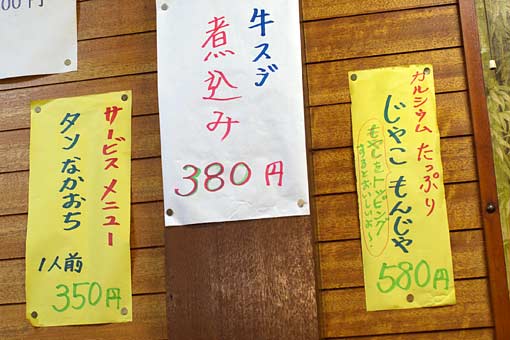 00円
牛スジ
煮込み
380円
サービスメニュー
タンなかおち
1人前
350円
カルシウムたっぷり
じゃこもんじゃ
もやしをトッピング
するとおいしいよ〜
580円